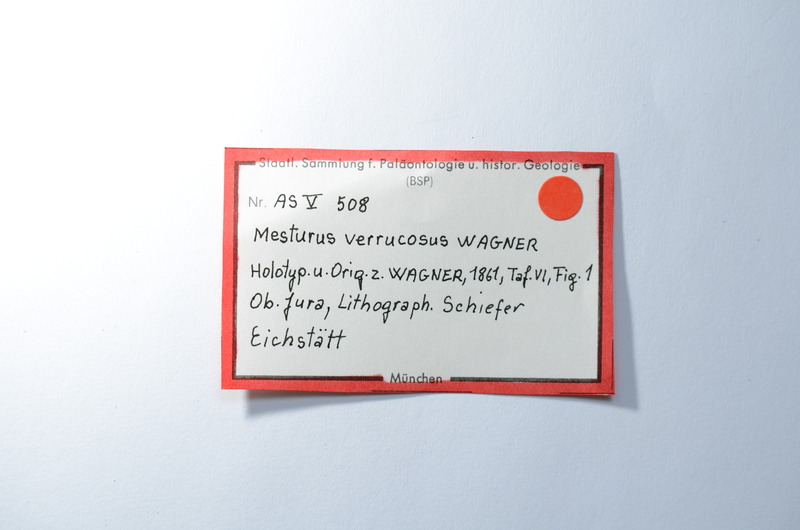 Staatl. Sammlung f. Paläontologie u. histor. Geologie
(BSP)
Nr. AS V 508
Mesturus verrucosus WAGNER
Holotyp. u. Orig. z. WAGNER, 1861, Taf. VI, Fig. 1
Ob. Jura, Lithograph. Schiefer
Eichstätt
München